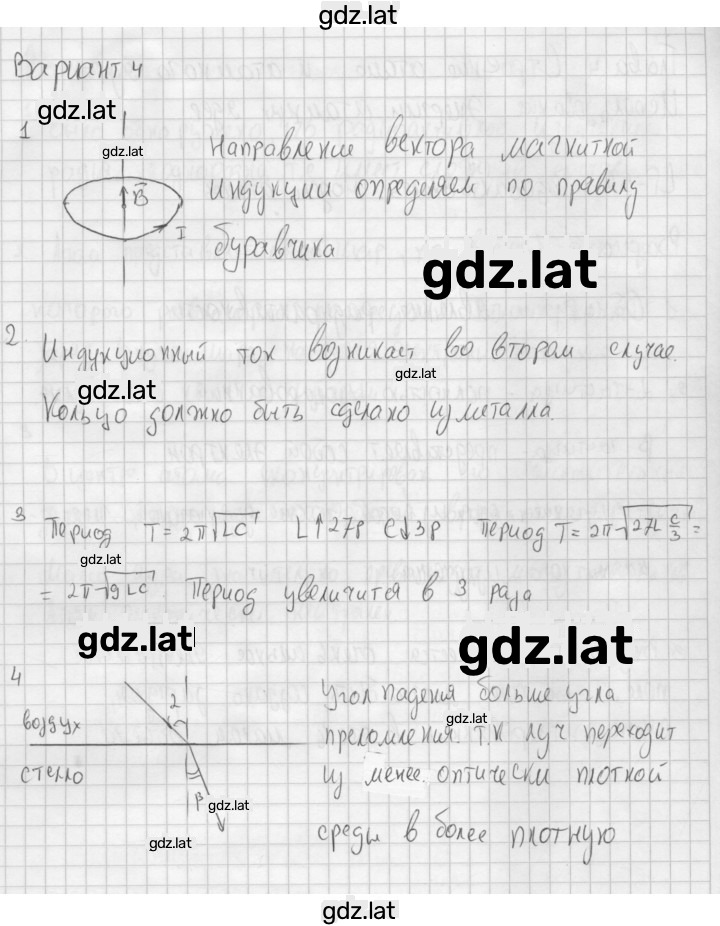 gdz.lat
Вариант 4
gdz.lat
1
gdz.lat
B
I
Направление вектора магнитной
индукции определяем по правилу
буравчика
gdz.lat
2. Индукционный ток возникает во втором случае.
gdz.lat
gdz.lat
Кольцо должно быть сделано из металла.
3 Период T = 2π√LC L↑27р C↓3р Период T = 2π√27L C/3 =
gdz.lat
= 2π√9LC. Период увеличится в 3 раза
gdz.lat
gdz.lat
4
воздух
стекло
2
β
gdz.lat
gdz.lat
Угол падения больше угла
gdz.lat
преломления. т.к луч переходит
из менее оптически плотной
среды в более плотную
gdz.lat